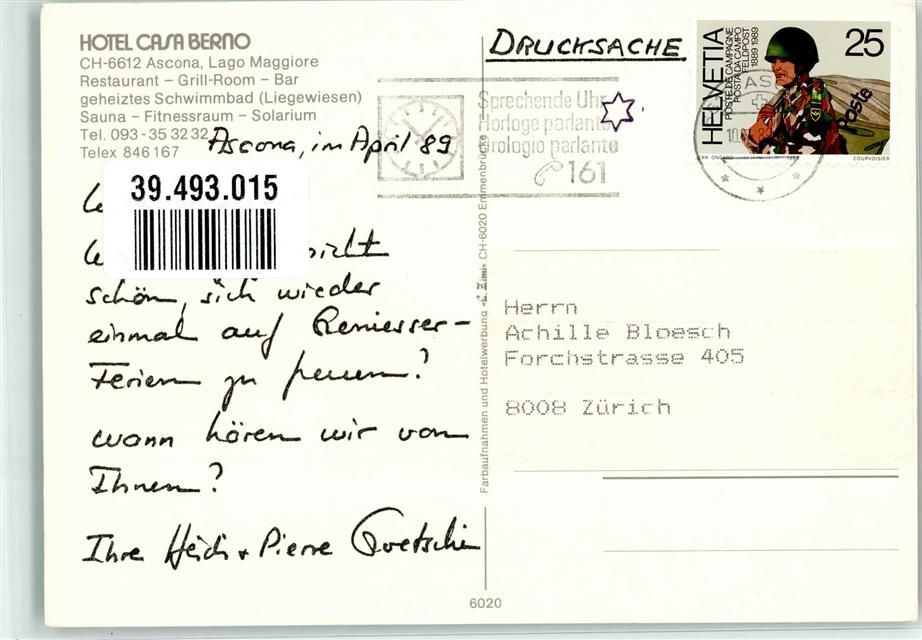 HOTEL CASA BERNO
CH-6612 Ascona, Lago Maggiore
Restaurant – Grill-Room – Bar
geheiztes Schwimmbad (Liegewiesen)
Sauna – Fitnessraum – Solarium
Tel. 093 - 35 32 32
Telex 846 167
Ascona, im April 89
39.493.015
nicht
schön, sich wieder
einmal auf
Ferien zu freuen?
wann hören wir von
Ihnen?
Ihre Heidi + Pierre Goetschi
DRUCKSACHE
Sprechende Uhr
Horloge parlante
Orologio parlante
161
HELVETIA
POSTE DE CAMPAGNE
POSTA DA CAMPO
FELDPOST
1889 1989
25
Poste
JEAN ONGARO
COURVOISIER
AS
10.
Farbaufnahmen und Hotelwerbung
CH-6020 Emmenbrücke
Herrn
Achille Bloesch
Forchstrasse 405
8008 Zürich
6020